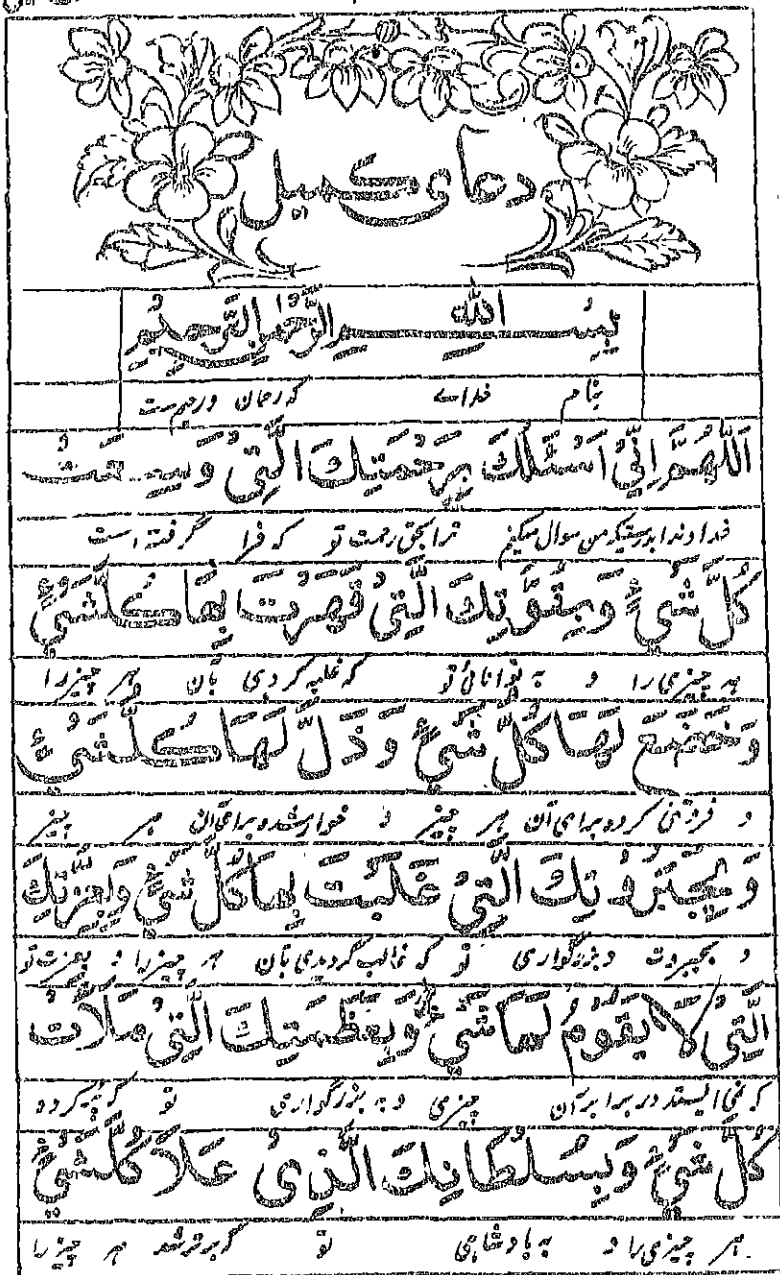 دعای کمیل
بِسْمِ اللهِ الرَّحْمٰنِ الرَّحِيْمِ
بنام خدای که رحمان و رحیم ست
اَللّٰهُمَّ اِنِّیْ اَسْئَلُكَ بِرَحْمَتِكَ الَّتِیْ وَسِعَتْ
خداوندا بدرستیکه من سوال میکنم ترا بحق رحمت تو که فرا گرفته است
كُلَّ شَیْءٍ وَبِقُوَّتِكَ الَّتِیْ قَهَرْتَ بِهَا كُلَّ شَیْءٍ
همه چیزی را و به توانائی تو که غلبه کردی بآن هر چیز را
وَخَضَعَ لَهَا كُلُّ شَیْءٍ وَذَلَّ لَهَا كُلُّ شَیْءٍ
و فروتنی کرده برای آن هر چیز و خوار شده برای آن هر چیز
وَبِجَبَرُوْتِكَ الَّتِیْ غَلَبْتَ بِهَا كُلَّ شَیْءٍ وَبِعِزَّتِكَ
و بجبروت و بزرگواری تو که غالب گردیدی بآن هر چیز را و بعزت تو
الَّتِیْ لَا یَقُوْمُ لَهَا شَیْءٌ وَبِعَظَمَتِكَ الَّتِیْ مَلَاَتْ
که نمی ایستد در برابر آن چیزی و به بزرگواری تو که پر کرده
كُلَّ شَیْءٍ وَبِسُلْطَانِكَ الَّذِیْ عَلَا كُلَّ شَیْءٍ
هر چیزی را و به پادشاهی تو که برتر شد هر چیز را